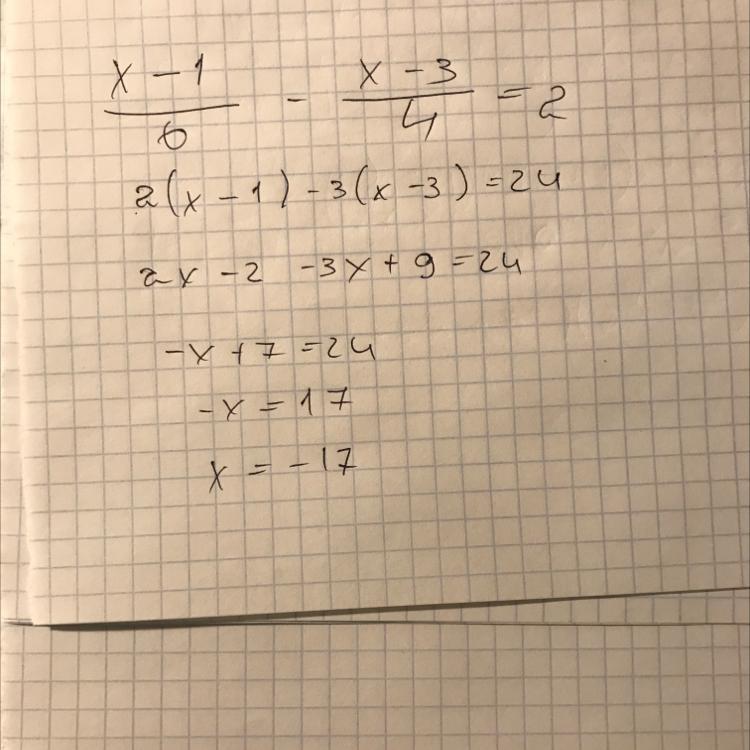 (x - 1)/6 - (x - 3)/4 = 2
2(x - 1) - 3(x - 3) = 24
2x - 2 - 3x + 9 = 24
-x + 7 = 24
-x = 17
x = -17